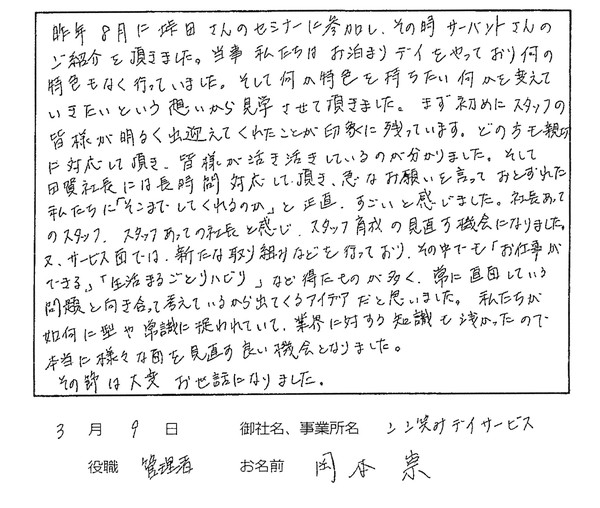 昨年8月に 坪田さんのセミナーに参加し、その時 サーバントさんの
ご紹介を頂きました。当事 私たちは お泊まりデイをやっており何の
特色もなく行っていました。そして何か特色を持ちたい 何かを変えて
いきたいという想いから見学させて頂きました。まず初めにスタッフの
皆様が明るく出迎えてくれたことが印象に残っています。どの方も親切
に対応して頂き、皆様が活き活きしているのが分かりました。そして
田賀社長には長時間対応して頂き、急なお願いを言っておとずれた
私たちに「そこまでしてくれるのか」と正直、すごいと感じました。社長あって
のスタッフ、スタッフあっての社長と感じ、スタッフ育成の見直す機会になりました。
又、サービス面では、新たな取り組みなどを行っており、その中でも「お仕事が
できる」「生活まるごとリハビリ」など得たものが多く、常に直面している
問題と向き合って考えているから出てくるアイデアだと思いました。私たちが
如何に型や常識に捉われていて、業界に対する知識も浅かったので
本当に様々な面を見直す良い機会となりました。
その節は大変 お世話になりました。
3月9日 御社名、事業所名 シニ笑みデイサービス
役職 管理者 お名前 岡本 崇